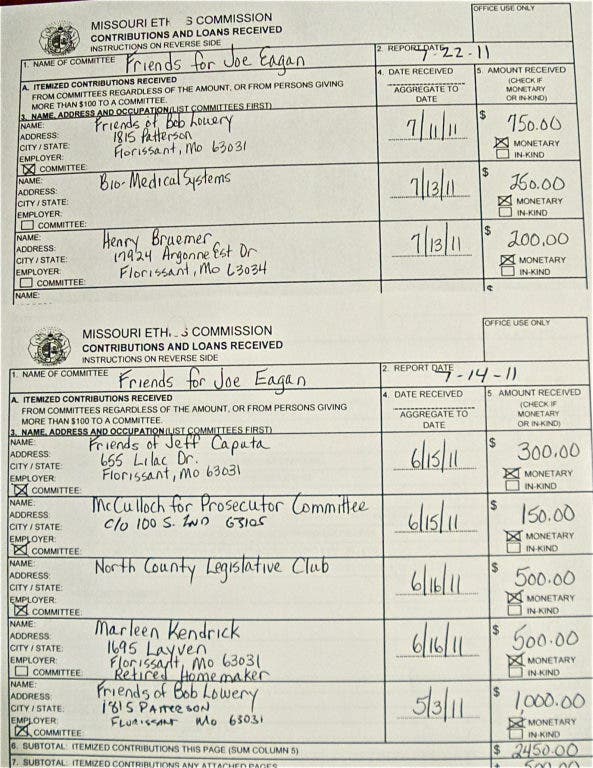 MISSOURI ETH S COMMISSION
CONTRIBUTIONS AND LOANS RECEIVED
INSTRUCTIONS ON REVERSE SIDE
OFFICE USE ONLY
1. NAME OF COMMITTEE Friends for Joe Eagan
2. REPORT DATE 7-22-11
A. ITEMIZED CONTRIBUTIONS RECEIVED
FROM COMMITTEES REGARDLESS OF THE AMOUNT, OR FROM PERSONS GIVING
MORE THAN $100 TO A COMMITTEE.
3. NAME, ADDRESS AND OCCUPATION (LIST COMMITTEES FIRST)
4. DATE RECEIVED
AGGREGATE TO
DATE
5. AMOUNT RECEIVED
(CHECK IF
MONETARY
OR IN-KIND)
NAME: Friends of Bob Lowery
ADDRESS: 1815 Patterson
CITY / STATE: Florissant, Mo 63031
EMPLOYER:
COMMITTEE:
7/11/11
$ 750.00
MONETARY
IN-KIND
NAME: Bio-Medical Systems
ADDRESS:
CITY / STATE:
EMPLOYER:
COMMITTEE:
7/13/11
$ 250.00
MONETARY
IN-KIND
NAME: Henry Bruemer
ADDRESS: 17924 Argonne Est Dr
CITY / STATE: Florissant, Mo 63034
EMPLOYER:
COMMITTEE:
7/13/11
$ 200.00
MONETARY
IN-KIND
NAME:
MISSOURI ETH S COMMISSION
CONTRIBUTIONS AND LOANS RECEIVED
INSTRUCTIONS ON REVERSE SIDE
OFFICE USE ONLY
1. NAME OF COMMITTEE Friends for Joe Eagan
2. REPORT DATE 7-14-11
A. ITEMIZED CONTRIBUTIONS RECEIVED
FROM COMMITTEES REGARDLESS OF THE AMOUNT, OR FROM PERSONS GIVING
MORE THAN $100 TO A COMMITTEE.
3. NAME, ADDRESS AND OCCUPATION (LIST COMMITTEES FIRST)
4. DATE RECEIVED
AGGREGATE TO
DATE
5. AMOUNT RECEIVED
(CHECK IF
MONETARY
OR IN-KIND)
NAME: Friends of Jeff Caputa
ADDRESS: 655 Lilac Dr.
CITY / STATE: Florissant, Mo 63031
EMPLOYER:
COMMITTEE:
6/15/11
$ 300.00
MONETARY
IN-KIND
NAME: McCulloch for Prosecutor Committee
ADDRESS: c/o 100 S. 2ND 63105
CITY / STATE:
EMPLOYER:
COMMITTEE:
6/15/11
$ 150.00
MONETARY
IN-KIND
NAME: North County Legislative Club
ADDRESS:
CITY / STATE:
EMPLOYER:
COMMITTEE:
6/16/11
$ 500.00
MONETARY
IN-KIND
NAME: Marleen Kendrick
ADDRESS: 1695 Layven
CITY / STATE: Florissant, Mo 63031
EMPLOYER: Retired Homemaker
COMMITTEE:
6/16/11
$ 500.00
MONETARY
IN-KIND
NAME: Friends of Bob Lowery
ADDRESS: 1815 PATTERSON
CITY / STATE: FLORISSANT Mo 63031
EMPLOYER:
COMMITTEE:
5/3/11
$ 1,000.00
MONETARY
IN-KIND
6. SUBTOTAL: ITEMIZED CONTRIBUTIONS THIS PAGE (SUM COLUMN 5)
$ 2450.00
7. SUBTOTAL: ITEMIZED CONTRIBUTIONS ANY ATTACHED PAGES